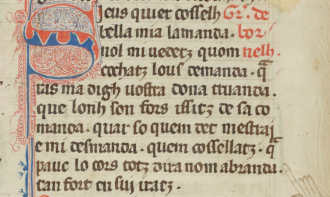 Jeus quier cosselh G. de
bella mia lamanda. bor
nol mi uedetz quom nelh
cochatz lous demanda. q̄
tas ma digh uostra dona truanda.
que lonh son fors issitz de sa co
manda. quar so quem det mestrai
e mi desmanda. quem cossellatz. q̄
pauc lo cors totz dira nom abrandu.
tan fort en sui iratz.